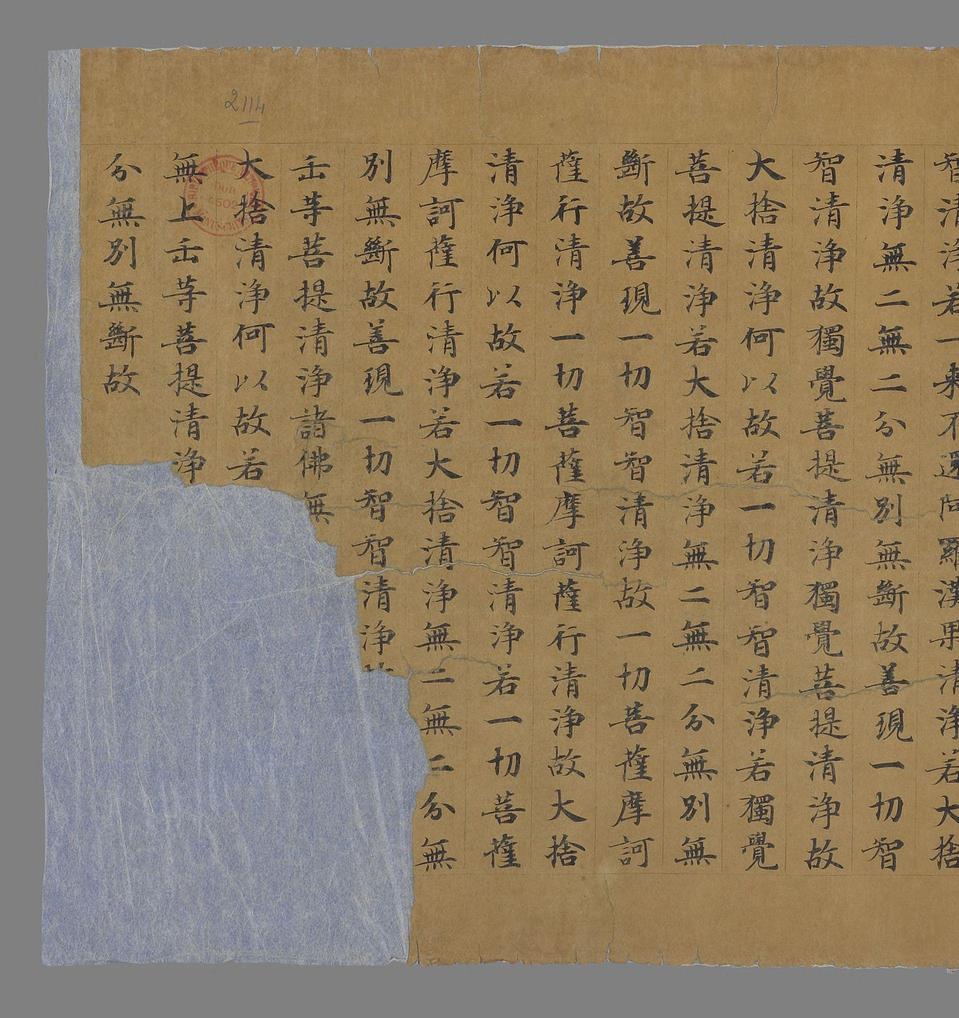 2114
智清浄若一來不還阿羅漢果清浄若大捨
清浄無二無二分無別無斷故善現一切智
智清浄故獨覺菩提清浄獨覺菩提清浄故
大捨清浄何以故若一切智智清浄若獨覺
菩提清浄若大捨清浄無二無二分無別無
斷故善現一切智智清浄故一切菩薩摩訶
薩行清浄一切菩薩摩訶薩行清浄故大捨
清浄何以故若一切智智清浄若一切菩薩
摩訶薩行清浄若大捨清浄無二無二分無
別無斷故善現一切智智清浄
正等菩提清浄諸佛無
大捨清浄何以故若
無上正等菩提清浄
分無別無斷故